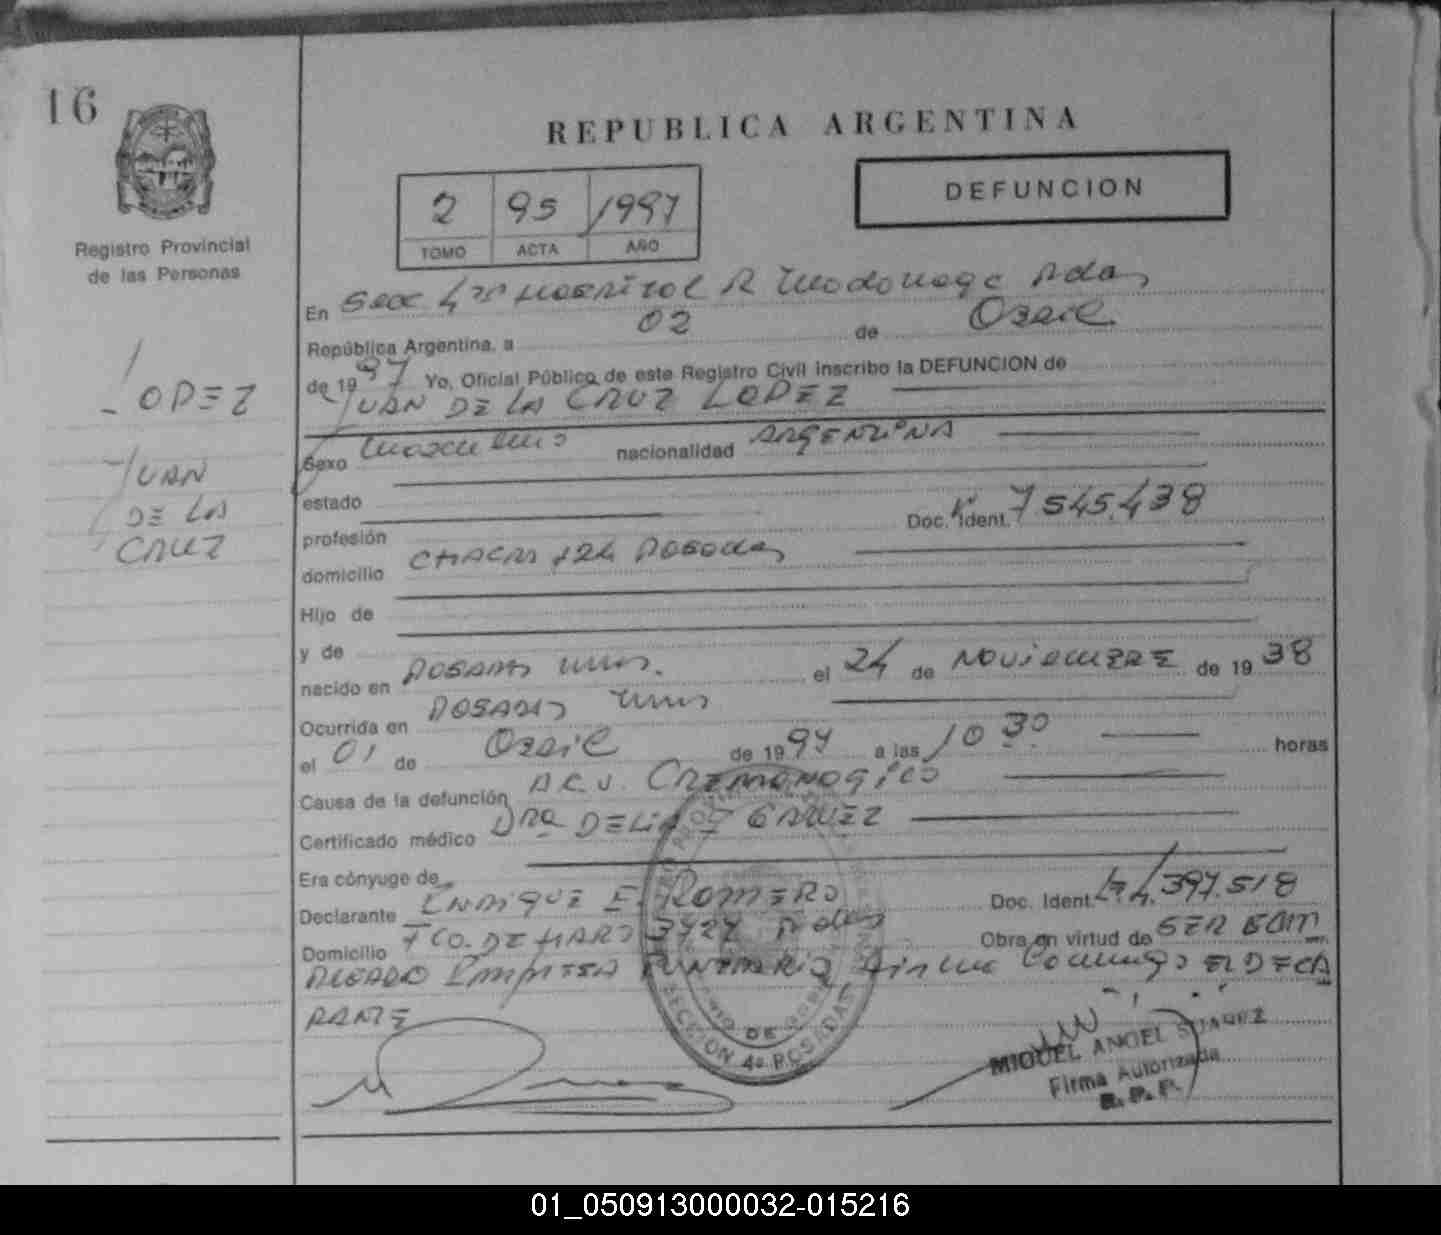 16
REPUBLICA ARGENTINA
DEFUNCION
2 95 1997
TOMO ACTA AÑO
Registro Provincial
de las Personas
LOPEZ
JUAN
DE LA
CRUZ
En Secc 4ta Hospital R Madariaga Pdas
República Argentina, a 02 de Abril
de 1997 Yo, Oficial Público de este Registro Civil inscribo la DEFUNCION de
JUAN DE LA CRUZ LOPEZ
Sexo Masculino nacionalidad ARGENTINA
estado
profesión Doc. Ident. 7545.438
domicilio CHACRA 124 POSADAS
Hijo de
y de
nacido en POSADAS Mnes. el 24 de NOVIEMBRE de 1938
Ocurrida en POSADAS Mnes
el 01 de Abril de 1997 a las 10 30 horas
Causa de la defunción
Certificado médico DRA DELIA
Era cónyuge de
Declarante ENRIQUE E. ROMERO Doc. Ident. 397.518
Domicilio FCO. DE HARO 3424 Pdas Obra en virtud de SER EM
PLEADO EMPRESA FUNERARIA Firma Conmigo EL DECLA
RANTE
SECCION 4a POSADAS
MIGUEL ANGEL SUAREZ
Firma Autorizada
R.P.P.
01_050913000032-015216